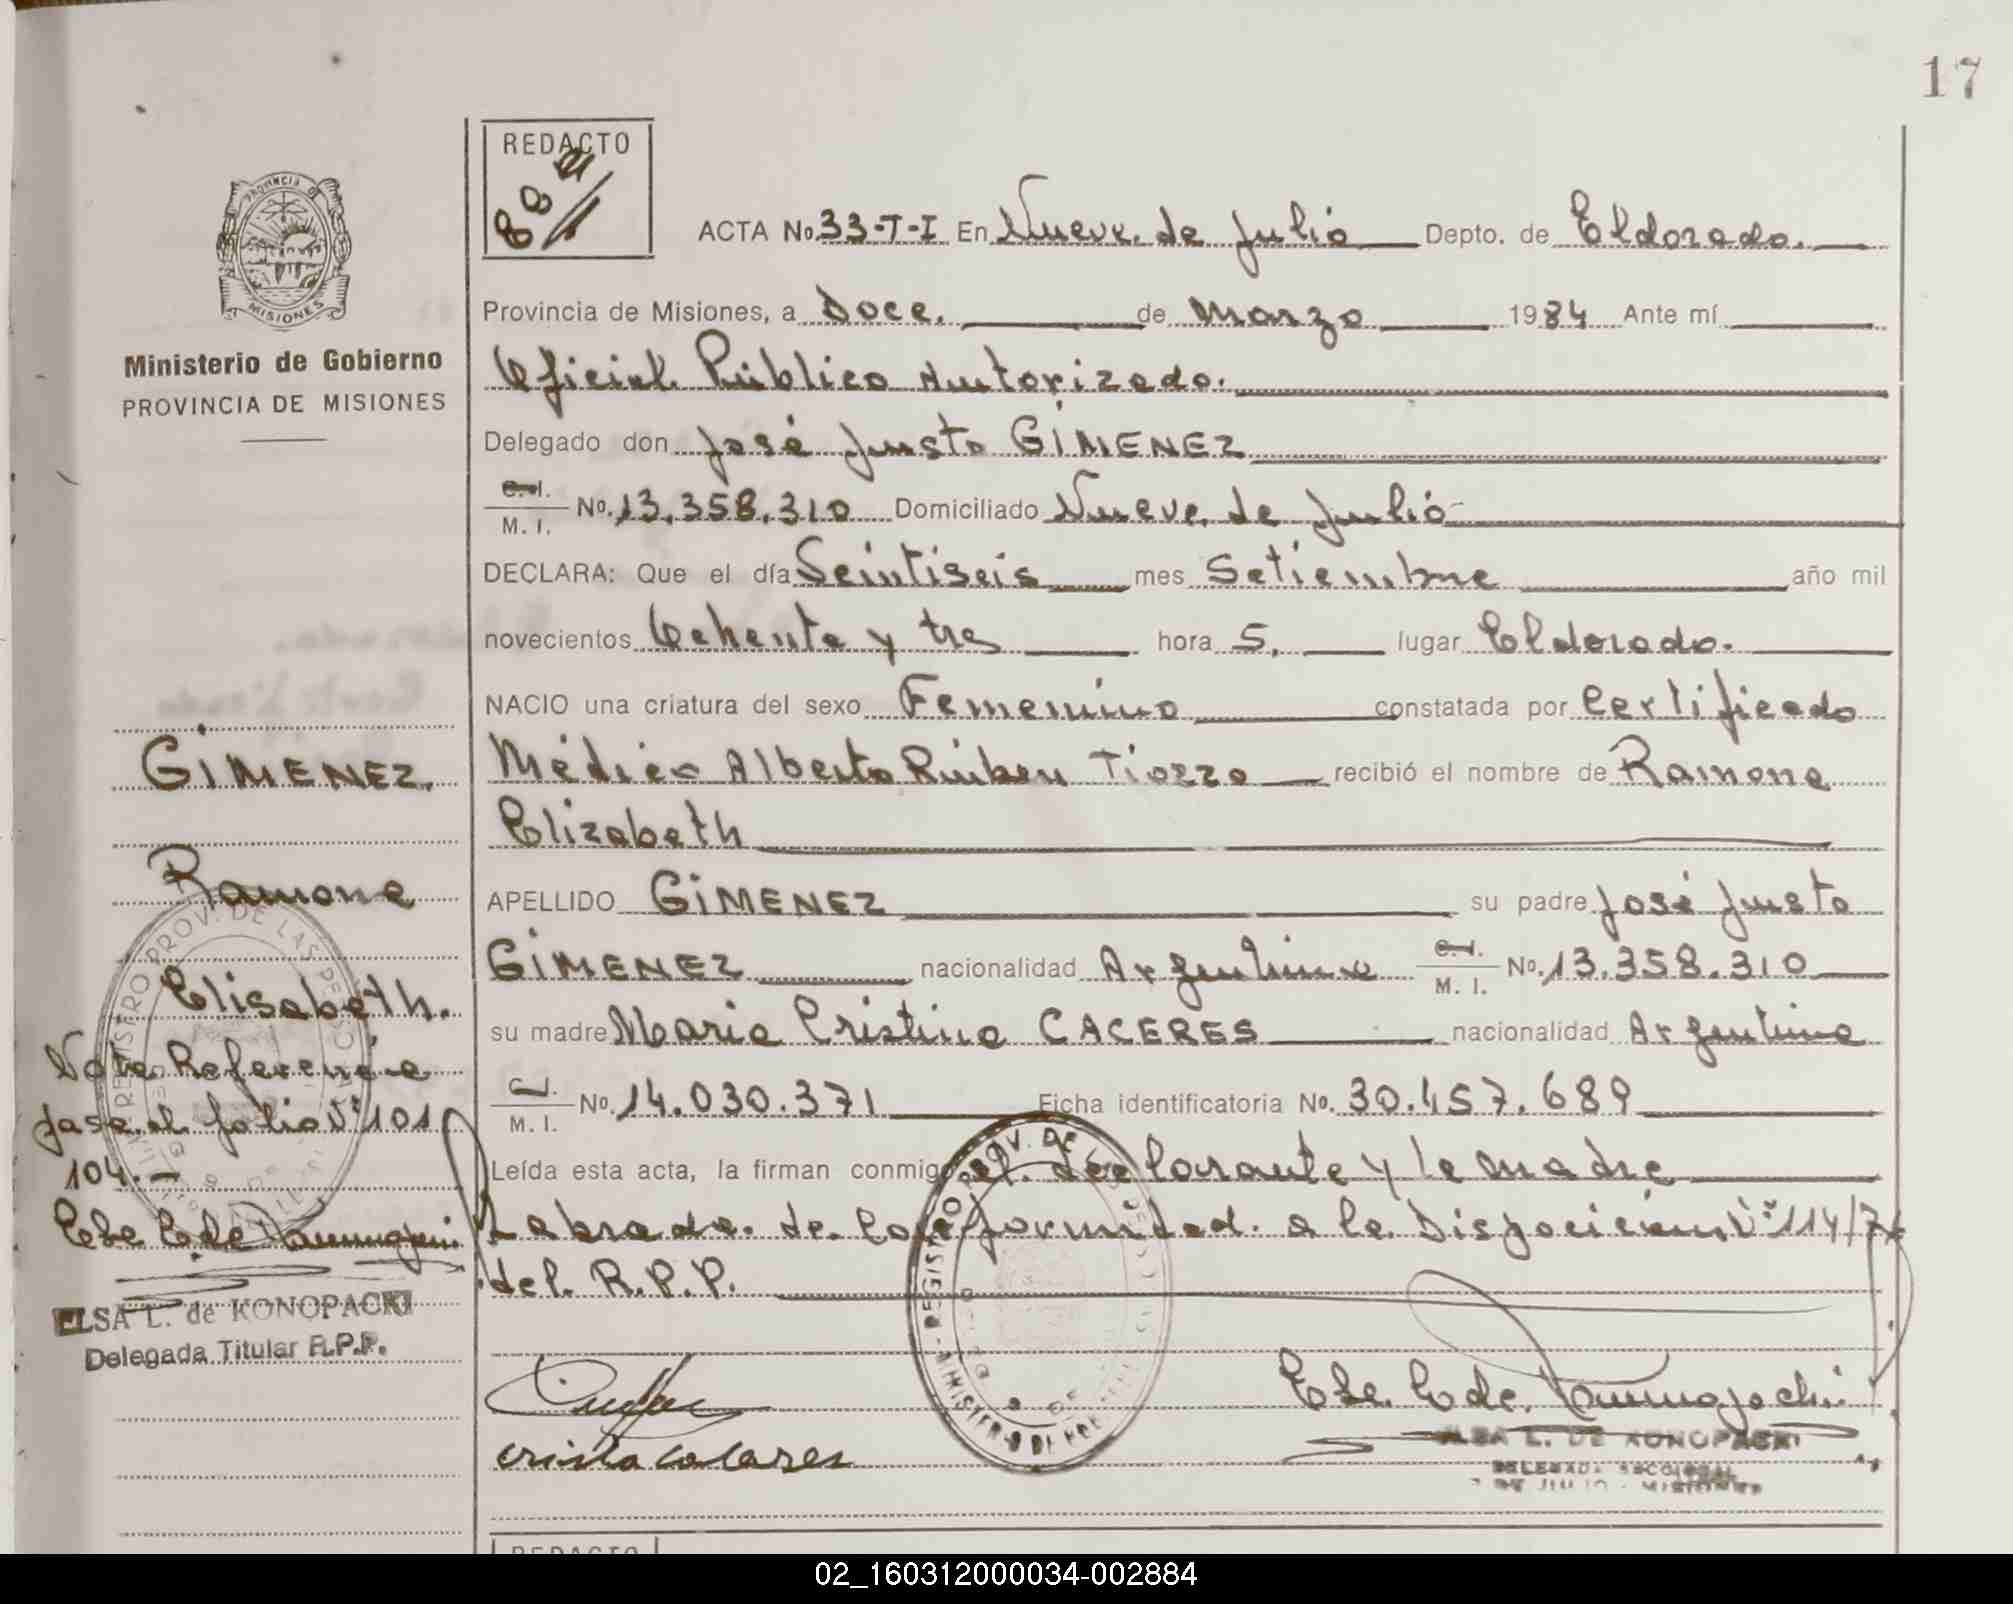 17
REDACTO
ACTA No. 33-T-I En Nueve de Julio Depto. de Eldorado.
PROVINCIA DE
MISIONES
Provincia de Misiones, a Doce. de Marzo 1984 Ante mí
Ministerio de Gobierno
PROVINCIA DE MISIONES
Oficial Público Autorizado.
Delegado don José Justo GIMENEZ
C. I.
M. I. No. 13.358.310 Domiciliado Nueve de Julio
DECLARA: Que el día Seintiseis mes Setiembre año mil
novecientos Ochenta y tres hora 5. lugar Eldorado.
NACIO una criatura del sexo Femenino constatada por Certificado
Médico Alberto Rúben Tiozzo recibió el nombre de Ramona
Elizabeth
APELLIDO GIMENEZ su padre José Justo
GIMENEZ nacionalidad Argentino C. I.
M. I. No. 13.358.310
su madre Maria Cristina CACERES nacionalidad Argentina
C. I.
M. I. No. 14.030.371 Ficha identificatoria No. 30.457.689
Leída esta acta, la firman conmigo el declarante y la madre
Labrada de Conformidad a la Disposición Nº 114/74
del R.P.P.
GIMENEZ.
Ramona
Elisabeth.
Nota Referencia
pasa al folio Nº 101
104.-
ELSA L. de KONOPACKI
Delegada Titular R.P.P.
ELSA L. DE KONOPACKI
DELEGADA
9 DE JULIO - MISIONES
REDACTO
02_160312000034-002884